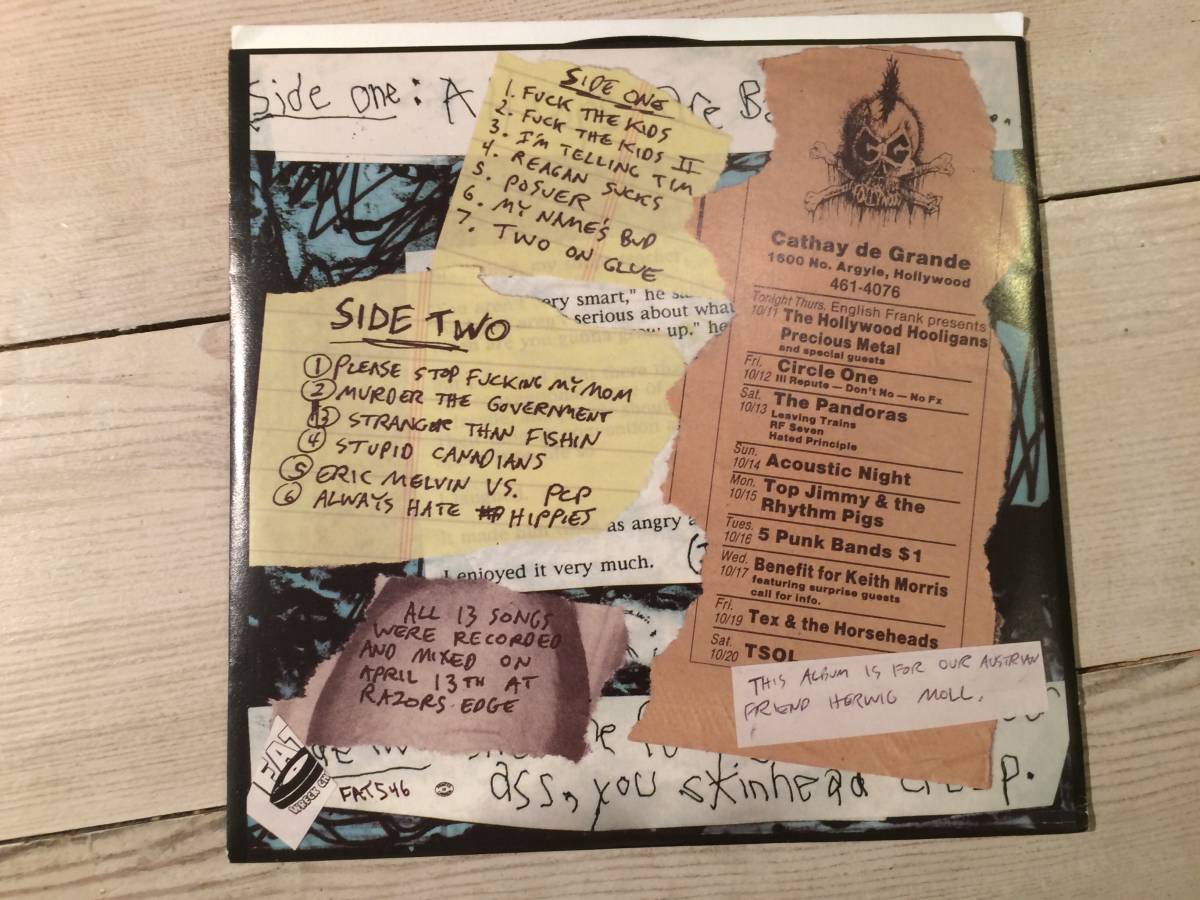 Side one: A
SIDE ONE
1. FUCK THE KIDS
2. FUCK THE KIDS II
3. I'M TELLING TIM
4. REAGAN SUCKS
5. POSUER
6. MY NAME'S BUD
7. TWO ON GLUE
ery smart," he
serious about what
up." he
SIDE TWO
1 PLEASE STOP FUCKING MY MOM
2 MURDER THE GOVERNMENT
3 STRANGER THAN FISHIN
4 STUPID CANADIANS
5 ERIC MELVIN VS. PCP
6 ALWAYS HATE HIPPIES
as angry
I enjoyed it very much.
ALL 13 SONGS
WERE RECORDED
AND MIXED ON
APRIL 13TH AT
RAZORS EDGE
Cathay de Grande
1600 No. Argyle, Hollywood
461-4076
Tonight Thurs. English Frank presents
10/11 The Hollywood Hooligans
Precious Metal
and special guests
Fri. 10/12 Circle One
Ill Repute — Don't No — No Fx
Sat. 10/13 The Pandoras
Leaving Trains
RF Seven
Hated Principle
Sun. 10/14 Acoustic Night
Mon. 10/15 Top Jimmy & the
Rhythm Pigs
Tues. 10/16 5 Punk Bands $1
Wed. 10/17 Benefit for Keith Morris
featuring surprise guests
call for info.
Fri. 10/19 Tex & the Horseheads
Sat. 10/20 TSOL
THIS ALBUM IS FOR OUR AUSTRIAN
FRIEND HERWIG MOLL.
FAT
WRECK CH
FAT546
ass, you skinhead